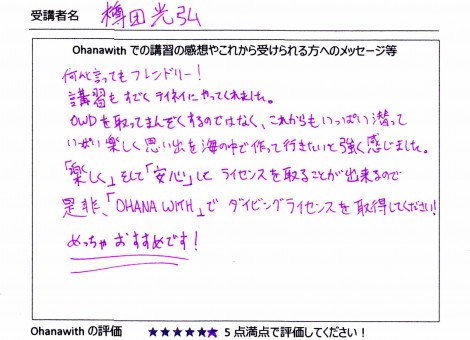 受講者名 樽田光弘
Ohanawith での講習の感想やこれから受けられる方へのメッセージ等
何と言ってもフレンドリー！
講習もすごくテイネイにやってくれました。
OWDを取ってまんぞくするのではなく、これからもいっぱい潜って
いっぱい楽しく思い出を海の中で作って行きたいと強く感じました。
「楽しく」そして「安心」して ライセンスを取ることが出来るので
是非、「OHANA WITH」で ダイビングライセンスを取得してください！
めっちゃおすすめです！
Ohanawith の評価 ★★★★★ 5 点満点で評価してください！